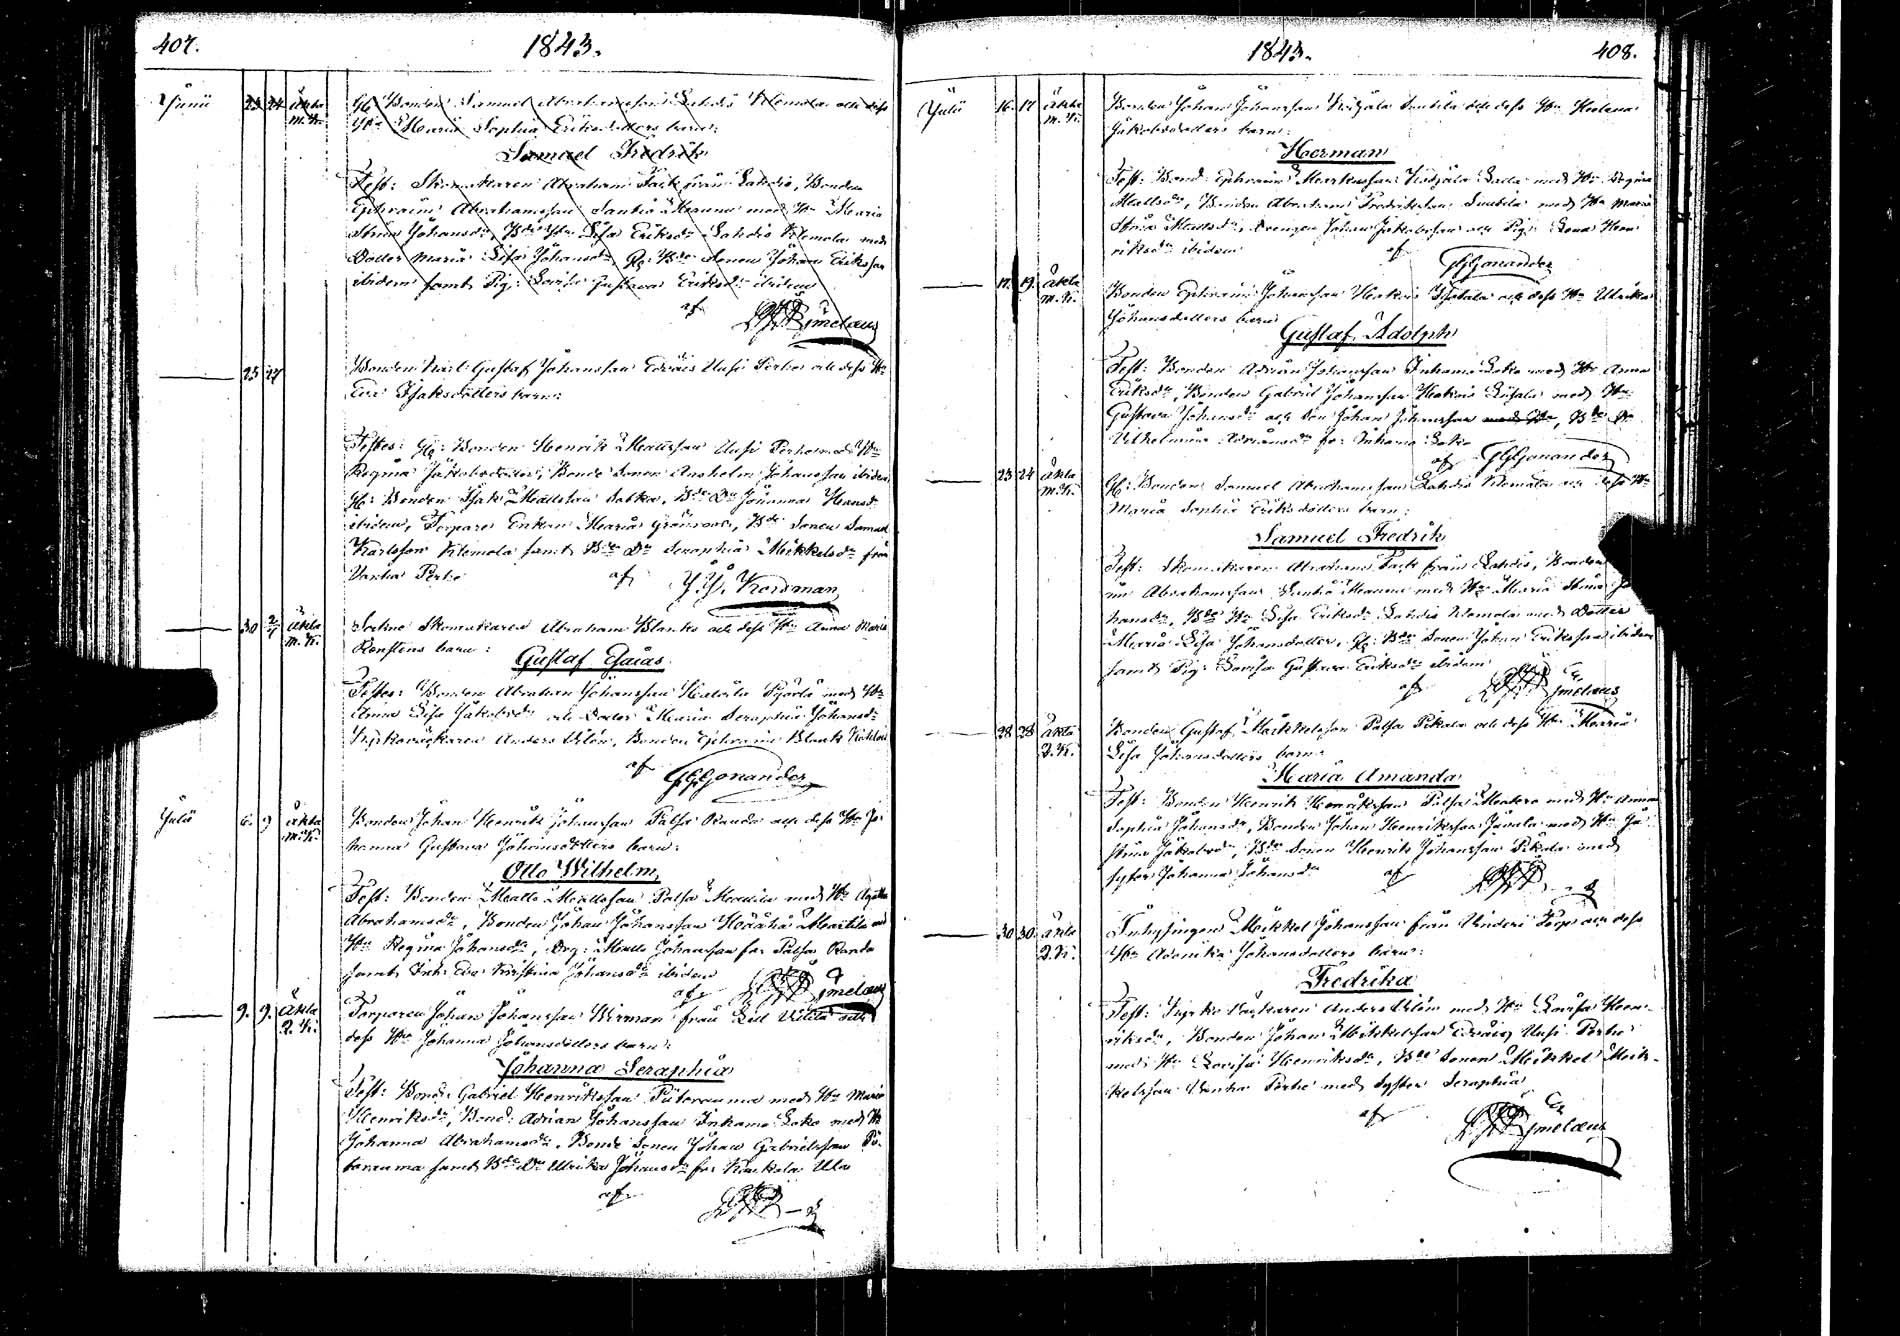 407.
1843.
Junii 23 24 äkta m.K. Gb: Bonden Samuel Abrahamsson Lahdis Klemola och dess
Hu Maria Sophia Eriksdotters barn:
Samuel Fredrik
Test: Skomakaren Abraham Tack från Lahdis, Bonden
Ephraim Abrahamsson Santio Maunu med Hu Maria
Stina Johansdr, Bde Hu Lisa Eriksdr Lahdis Klemola med
Dotter Maria Lisa Johansdr, Gb: Bde Sonen Johan Eriksson
ibidem samt Pig: Lovisa Gustava Eriksdr ibidem
af
23 24 Bonden Karl Gustaf Johansson Edväis Uusi Perho och dess Hu
Eva Isaksdotters barn:
Testes: Gb: Bonden Henrik Mattsson Uusi Perho med Hu
Regina Jakobsdotter, Bonde Sonen Anshelm Johansson ibidem
Gb: Bonden Isak Mattsson Sabka, Bde Dr Johanna Hansdr
ibidem, Torpare Enkan Maria Grönroos, Bde Sonen Samuel
Karlsson Klemola samt Bde Dr Seraphia Mikkelsdr från
Vanha Perho
af J. J. Nordman
30 2/7 äkta m.K. Sockne Skomakaren Abraham Blanks och dess Hu Anna Maria
Renstens barn:
Gustaf Esaias
Testes: Bonden Abraham Johansson Kalaila Pijarlä med Hu
Anna Lisa Jakobsdr och Dotter Maria Seraphia Johansdr
Kyrkoväktaren Anders Wilén, Bonden Ephraim Blank
af GGGonander
Julii 6. 9 äkta m.K. Bonden Johan Henrik Johansson Palsa Randa och dess Hu Jo-
hanna Gustava Johansdotters barn:
Otto Wilhelm
Test: Bonden Matts Mattsson Palsa Maunu med Hu Agatha
Abrahamsdr, Bonden Johan Johansson Hoäähä Marttila med
Hu Regina Johansdr, Drg: Matts Johansson fr Palsa Randa
samt Inh: Eva Kristina Johansdr ibidem
af
9. 9. äkta D.K. Torparen Johan Johansson Wirman från Lill Willa och
dess Hu Johanna Johansdotters barn:
Johanna Seraphia
Test: Bond: Gabriel Henriksson Piiteranma med Hu Maria
Henriksdr, Bond: Adrian Johansson Inkamo Loko med Hu
Johanna Abrahamsdr, Bonde Sonen Johan Gabrielsson Pii
teranma samt Bde Dr Ulrika Johansdr fr Kaukola Ula
af
1843.
408.
Julii 16. 17 äkta m.K. Bonden Johan Johansson Knizjala Santila och dess Hu Helena
Jakobsdotters barn:
Herman
Test: Bond: Ephraim Markusson Knizjala Laila med Hu Regina
Mattsdr, Bonden Abraham Fredriksson Santila med Hu Maria
Stina Mattsdr, Drengen Johan Jakobsson och Pig: Lena Hen
riksdr ibidem
af
GGGonander
17. 19. äkta m.K. Bonden Ephraim Johansson Hakois Isotalo och dess Hu Ulrika
Johansdotters barn
Gustaf Adolph
Test: Bonden Adrian Johansson Inkamo Loko med Hu Anna
Eriksdr, Bonden Gabriel Johansson Hakois Liisala med Hu
Gustava Johansdr och Son Johan Johansson med Hu, Bde Dr
Vilhelmina Adriansdr fr Inkamo Loko
af GGGonander
23 24 äkta m.K. Gb: Bonden Samuel Abrahamsson Lahdis Klemola och dess Hu
Maria Sophia Eriksdotters barn:
Samuel Fredrik
Test: Skomakaren Abraham Tack från Lahdis, Bonden
im Abrahamsson Santio Maunu med Hu Maria Stina Jo
hansdr, Bde Hu Lisa Eriksdr Lahdis Klemola med Dotter
Maria Lisa Johansdotter, Gb: Bde Sonen Johan Eriksson ibidem
samt Pig: Lovisa Gustava Eriksdr ibidem
af
28. 28 äkta D.K. Bonden Gustaf Mikkelsson Palsa Pikala och dess Hu Maria
Lisa Johansdotters barn:
Maria Amanda
Test: Bonden Henrik Henriksson Palsa Mattero med Hu Anna
Sophia Johansdr, Bonden Johan Henriksson Javala med Hu Ju
stina Jakobsdr, Bde Sonen Henrik Johansson Pikala med
syster Johanna Johansdr af
30 30. äkta D.K. Inhysingen Mikkel Johansson från Vinderi Torp och dess
Hu Adamika Johansdotters barn:
Fredrika
Test: Kyrko Väktaren Anders Wilén med Hu Lovisa Hen-
riksdr, Bonden Johan Mikkelsson Edväis Uusi Perho
med Hu Lovisa Henriksdr, Bde Sonen Mikkel Mik-
kelsson Vanha Perho med syster Seraphia
af